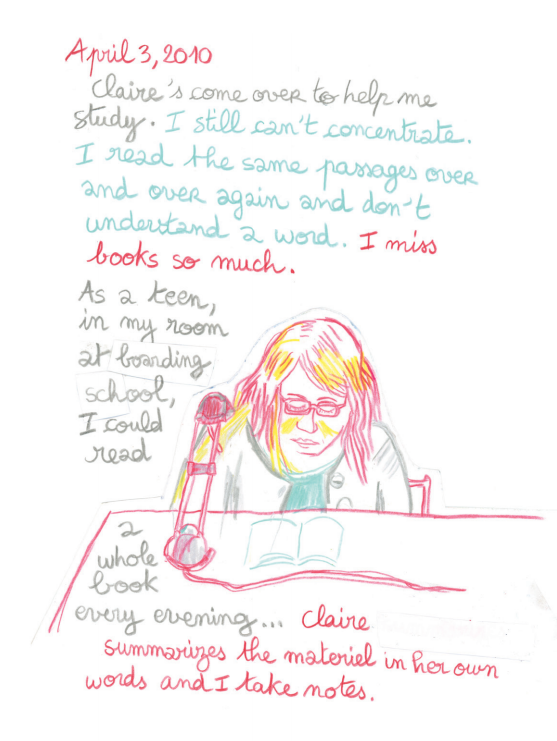 April 3, 2010
Claire's come over to help me
study. I still can't concentrate.
I read the same passages over
and over again and don't
understand a word. I miss
books so much.
As a teen,
in my room
at boarding
school,
I could
read
a
whole
book
every evening... Claire
summarizes the materiel in her own
words and I take notes.